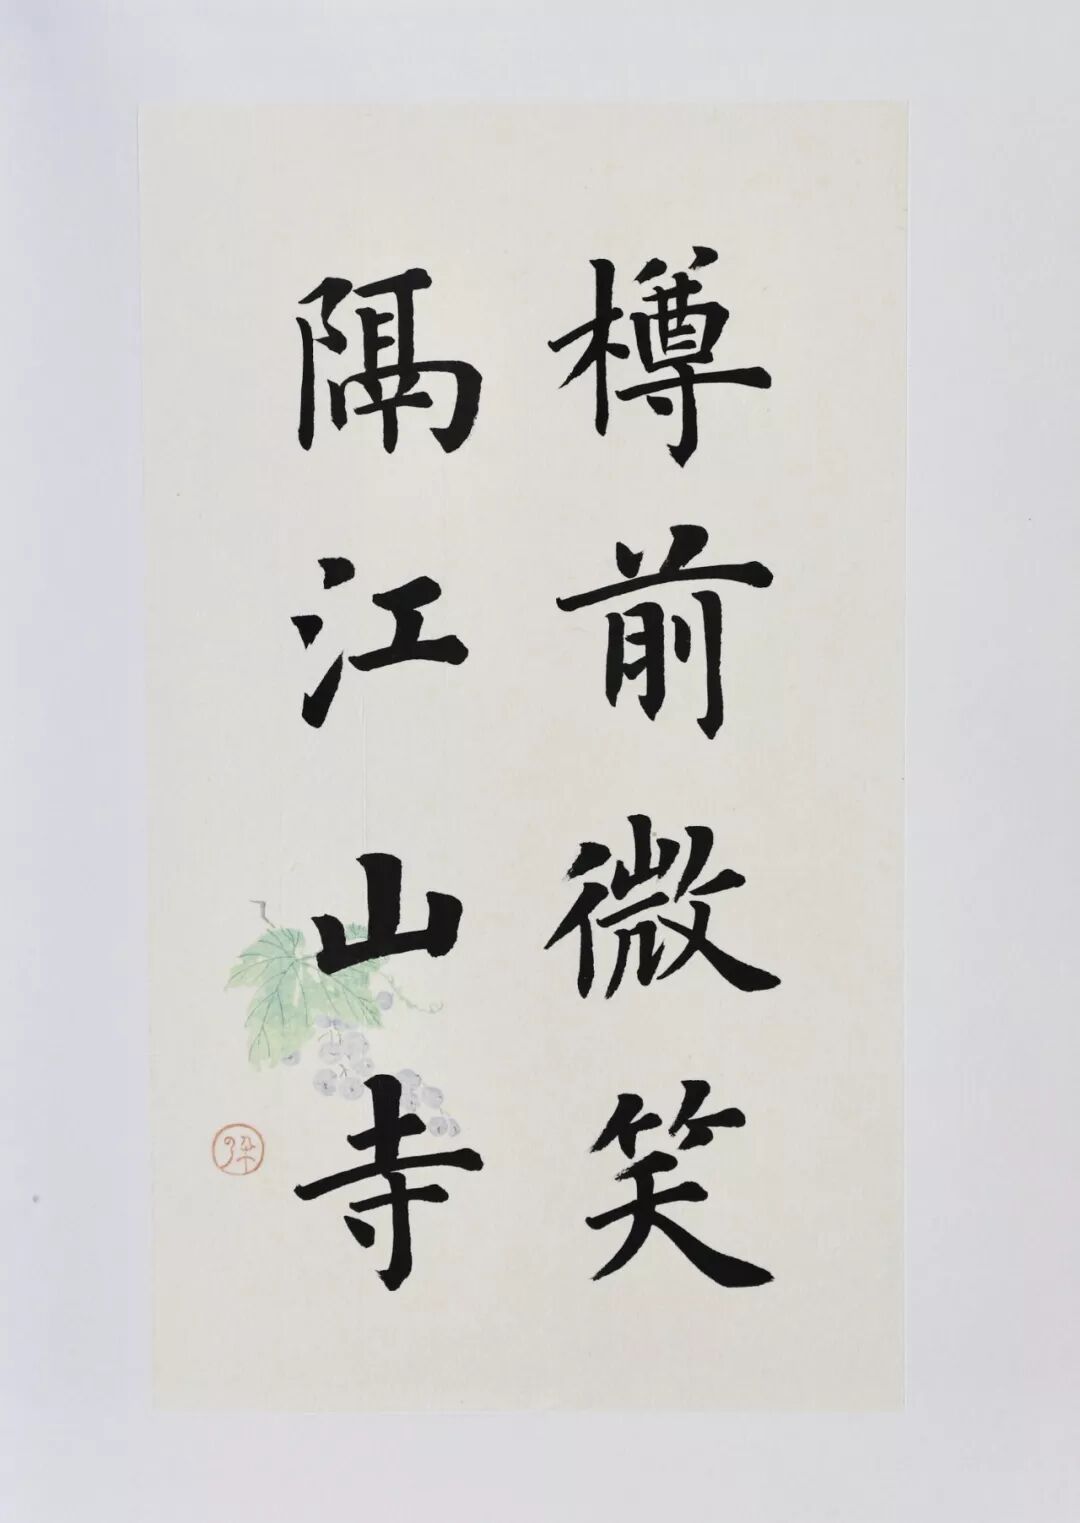 樽前微笑
隔江山寺